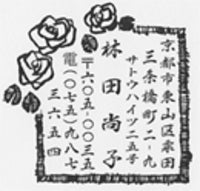 京都市東山区衆田
三条橋町二-九
サトウハイツ二五号
林田尚子
〒六〇五-〇〇三五
電(〇七五)九八七
三六五四